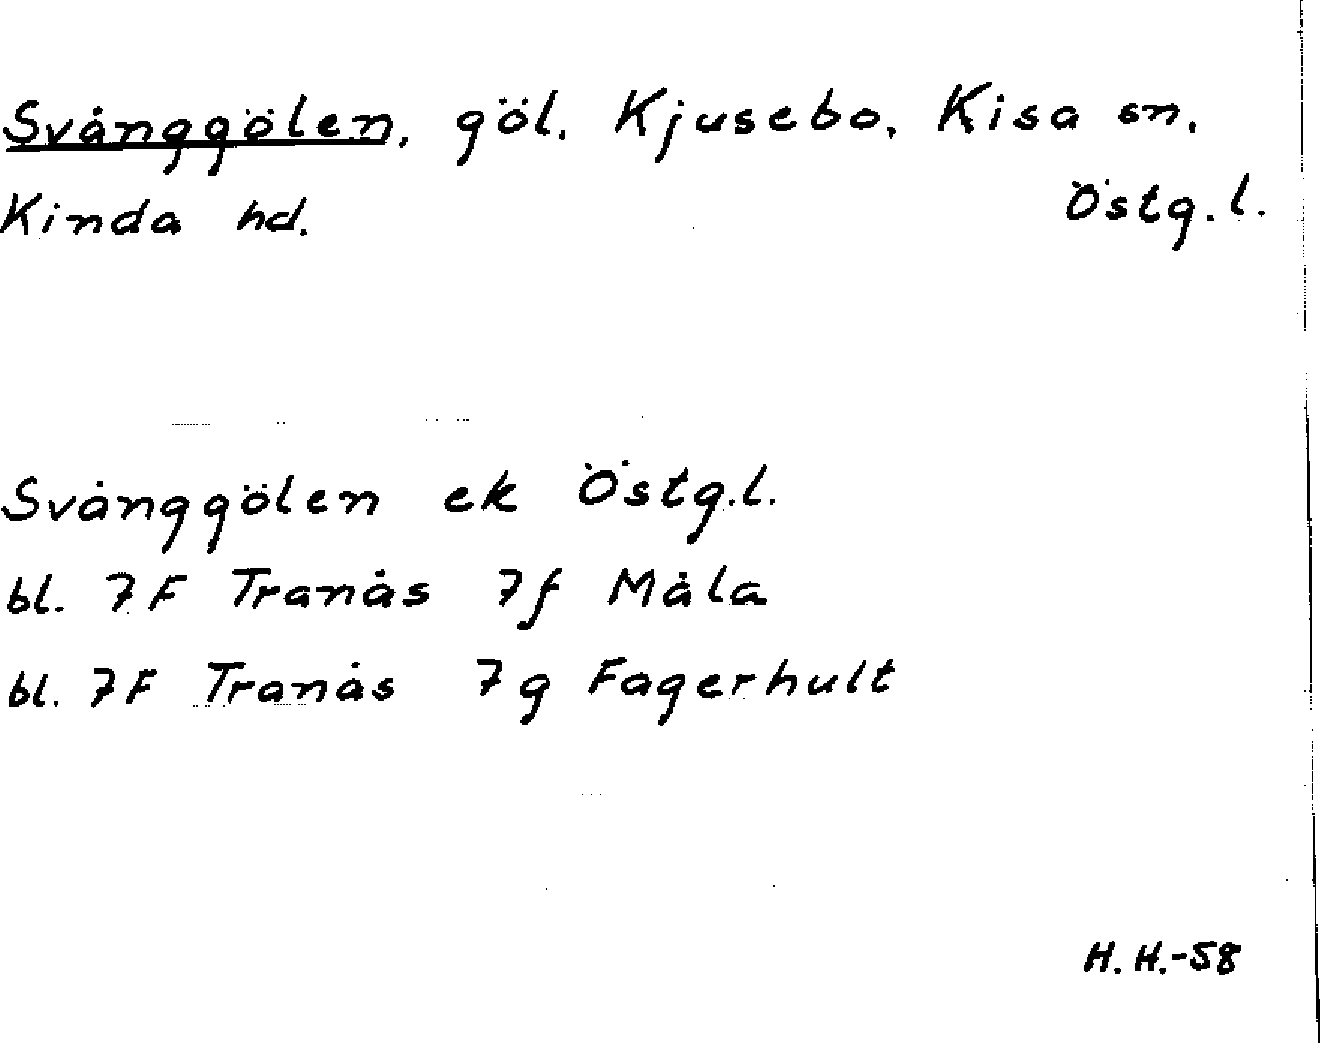 Svånggölen, göl, Kjusebo, Kisa sn,
Kinda hd. Östg.l.
Svånggölen ek Östg.l.
bl. 7F Tranås 7f Måla
bl. 7F Tranås 7g Fagerhult
H.H.-58